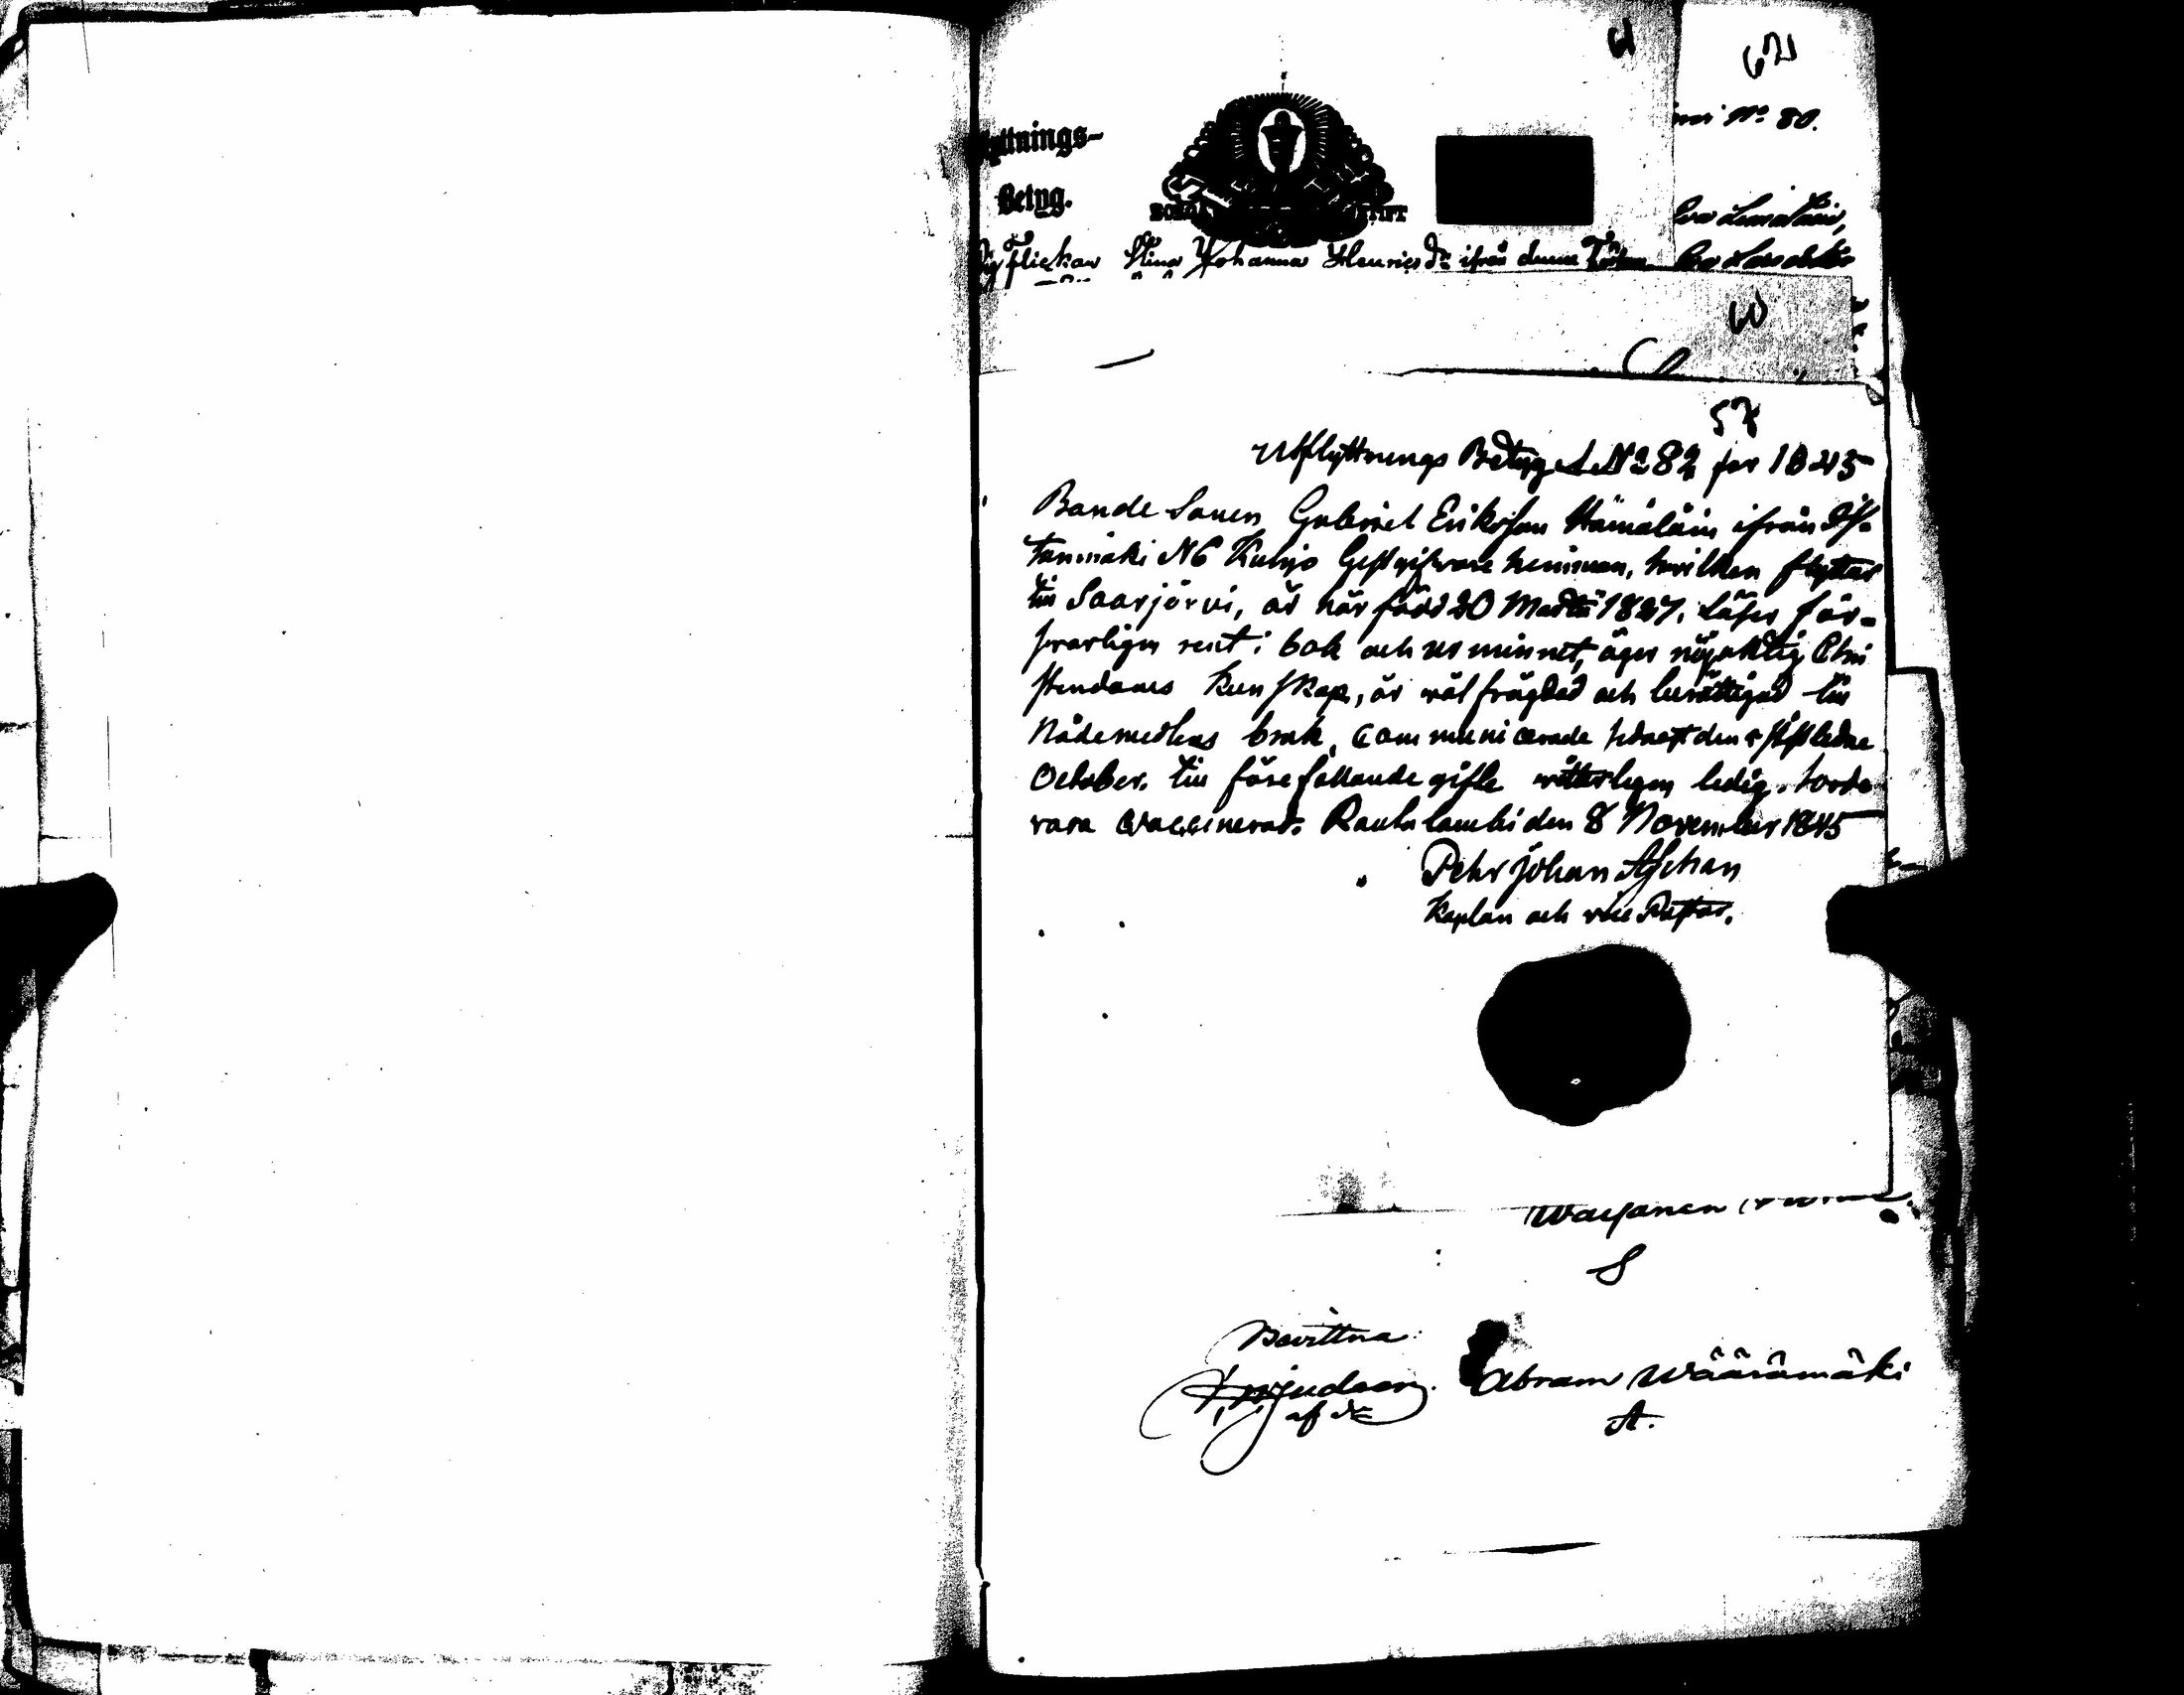 61
62
No 80.
Flyttnings-
Betyg.
Flickan Stina Johanna Henricsdr ifrån denna
60
57
Utflyttnings Betyg No 82 för 1845
Bonde Sonen Gabriel Eriksson Hämäläin ifrån
tanmäki N6 Gestgifvare hemman, hvilken flyttar
till Saarjärvi, är här född 20 Martii 1827, läser för-
svarligen rent i bok och ur minnet, äger nöjaktig Chri
stendoms Kunskap, är väl frägdad och berättigad till
Nådemedlens bruk, communicerade sednast den sistledne
October. till förefallande gifte vitterligen ledig. torde
vara Vaccinerad. Rautalambi den 8 November 1845
Pehr Johan Aschan
Kaplan och vice Pastor.
Bevittna:
Abram Wäärämäki
A.